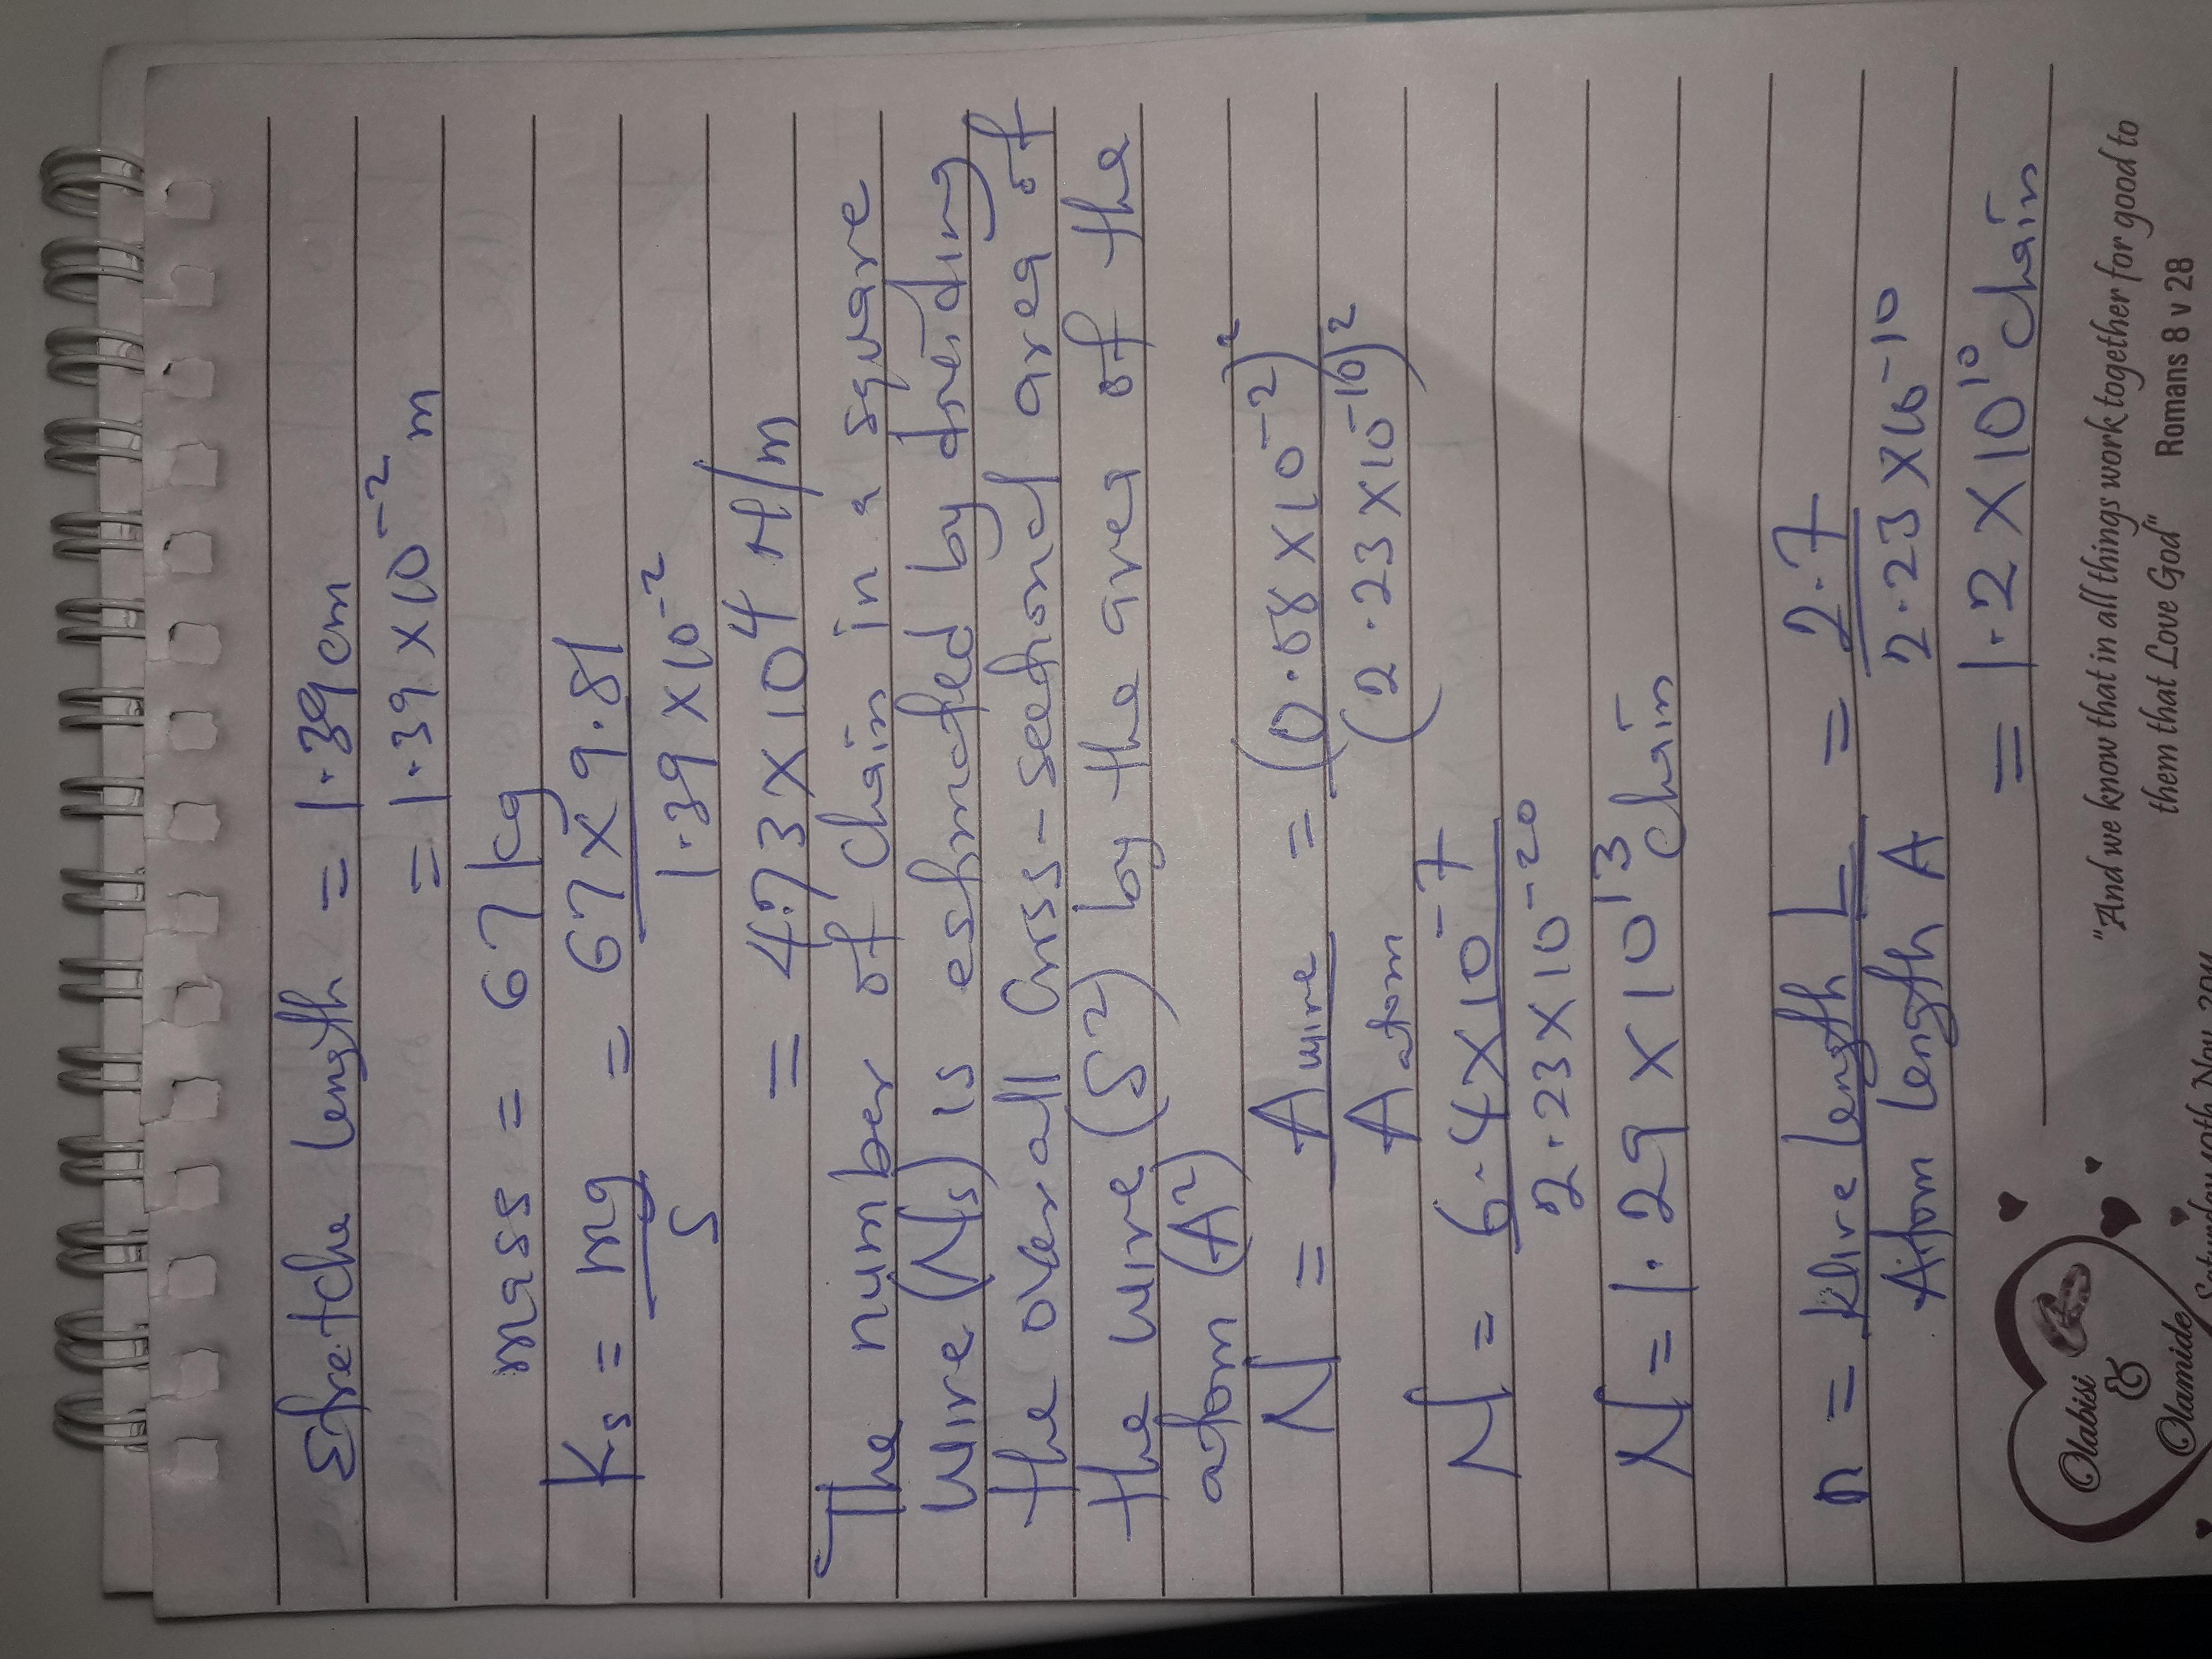 Stretche length = 1.39cm
= 1.39 × 10⁻² m
mass = 67kg
Ks = mg/s = 67 × 9.81/1.39 × 10⁻²
= 4.73 × 10⁴ N/m
The number of chain in a square
wire (Ns) is estimated by dividing
the overall Crss-sectional area of
the wire (S²) by the area of the
atom (A²)
N = A wire/A atom = (0.08 × 10⁻²)²/(2.23 × 10⁻¹⁰)²
N = 6.4 × 10⁻⁷/2.23 × 10⁻²⁰
N = 1.29 × 10¹³ chain
n = Wire length L/Atom length A = 2.7/2.23 × 10⁻¹⁰
= 1.2 × 10¹⁰ chain
"And we know that in all things work together for good to
them that Love God" Romans 8 v 28
Olabisi
&
Olamide